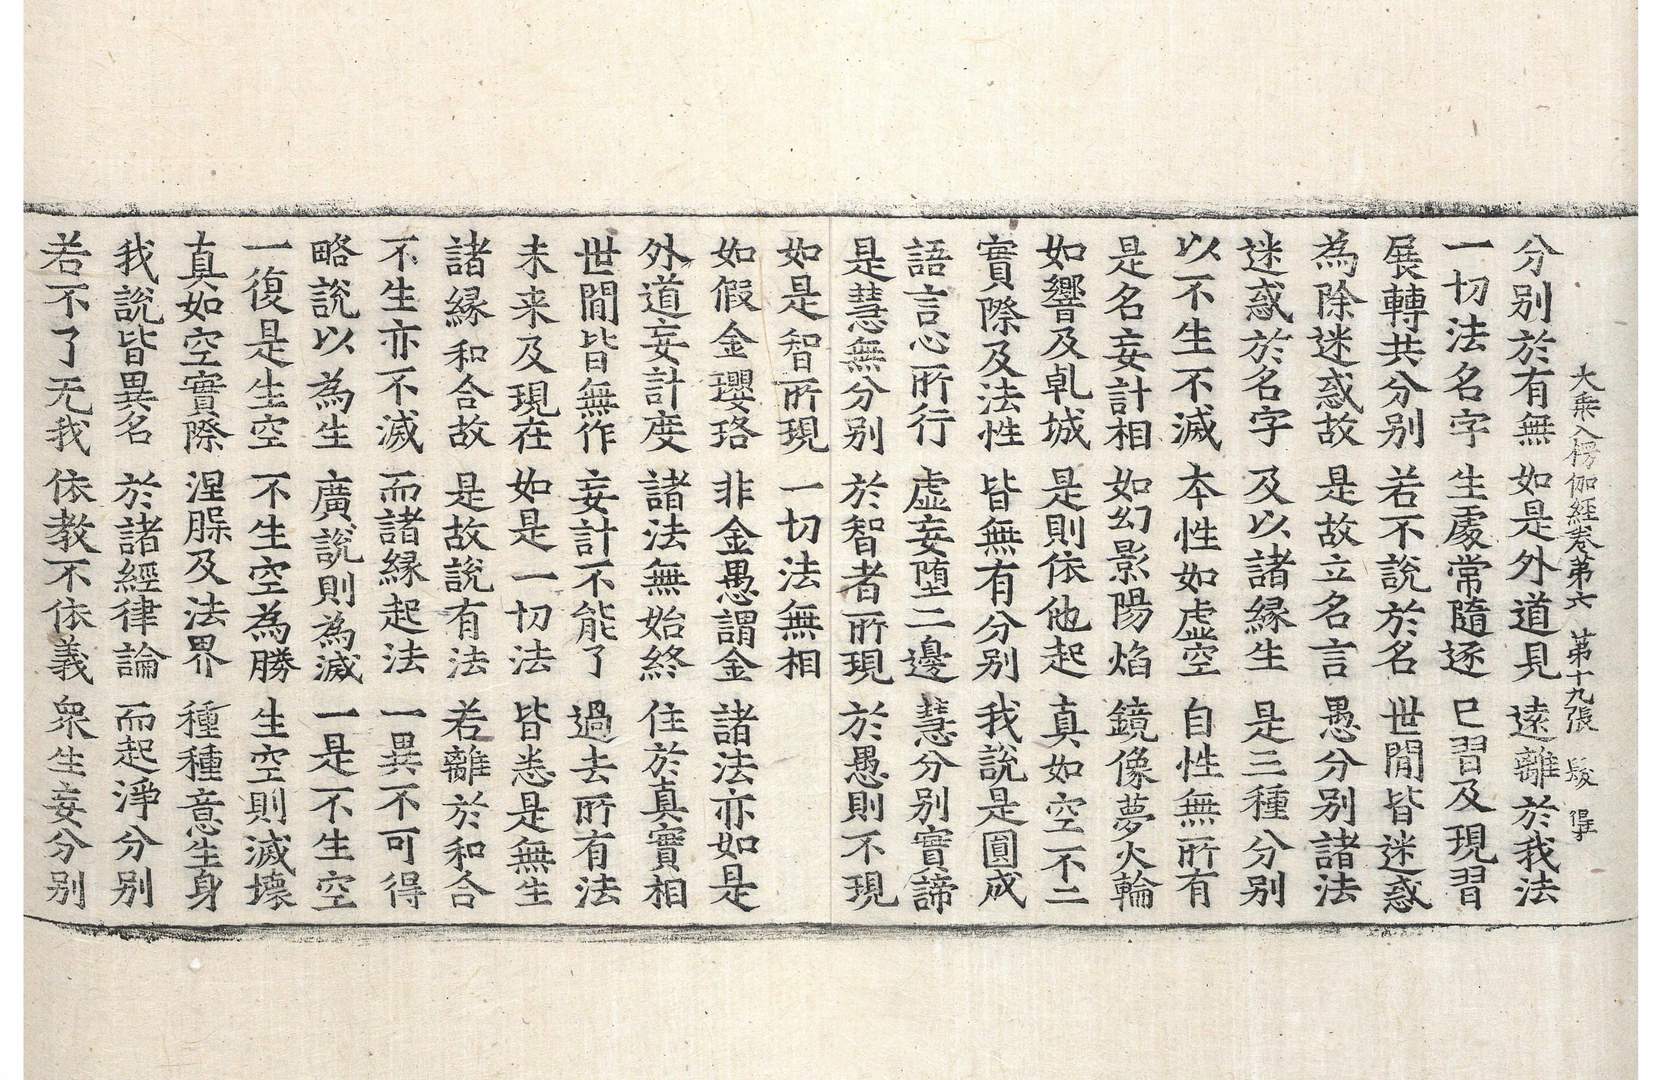 大乘入楞伽經卷第六 第十九張 髮 得
分別於有無 如是外道見 遠離於我法
一切法名字 生處常隨逐 已習及現習
展轉共分別 若不說於名 世閒皆迷惑
為除迷惑故 是故立名言 愚分別諸法
迷惑於名字 及以諸緣生 是三種分別
以不生不滅 本性如虛空 自性無所有
是名妄計相 如幻影陽焰 鏡像夢火輪
如響及乹城 是則依他起 真如空不二
實際及法性 皆無有分別 我說是圓成
語言心所行 虛妄墮二邊 慧分別實諦
是慧無分別 於智者所現 於愚則不現
如是智所現 一切法無相
如假金瓔珞 非金愚謂金 諸法亦如是
外道妄計度 諸法無始終 住於真實相
世閒皆無作 妄計不能了 過去所有法
未来及現在 如是一切法 皆悉是無生
諸縁和合故 是故說有法 若離於和合
不生亦不滅 而諸縁起法 一異不可得
略說以為生 廣說則為滅 一是不生空
一復是生空 不生空為勝 生空則滅壞
真如空實際 涅槃及法界 種種意生身
我說皆異名 於諸經律論 而起淨分別
若不了无我 依教不依義 衆生妄分別